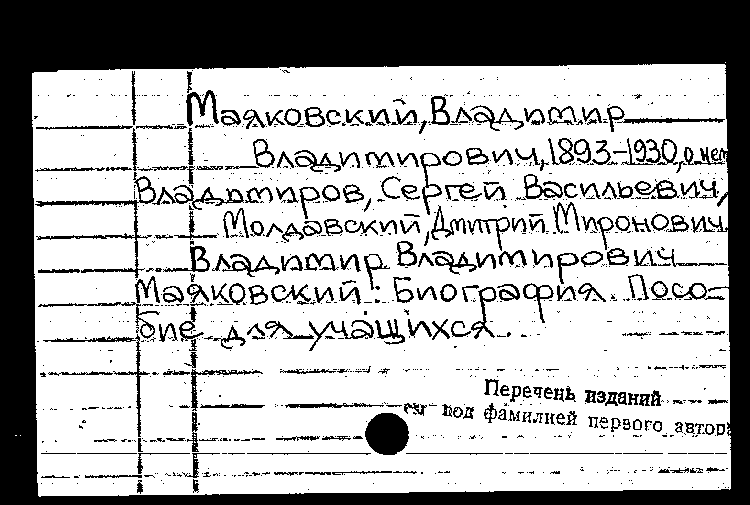 Маяковский, Владимир
Владимирович, 1893-1930, о нем
Владимиров, Сергей Васильевич,
Молдавский, Дмитрий Миронович.
Владимир Владимирович
Маяковский: Биография. Посо-
бие для учащихся.
Перечень изданий
под фамилией первого автора